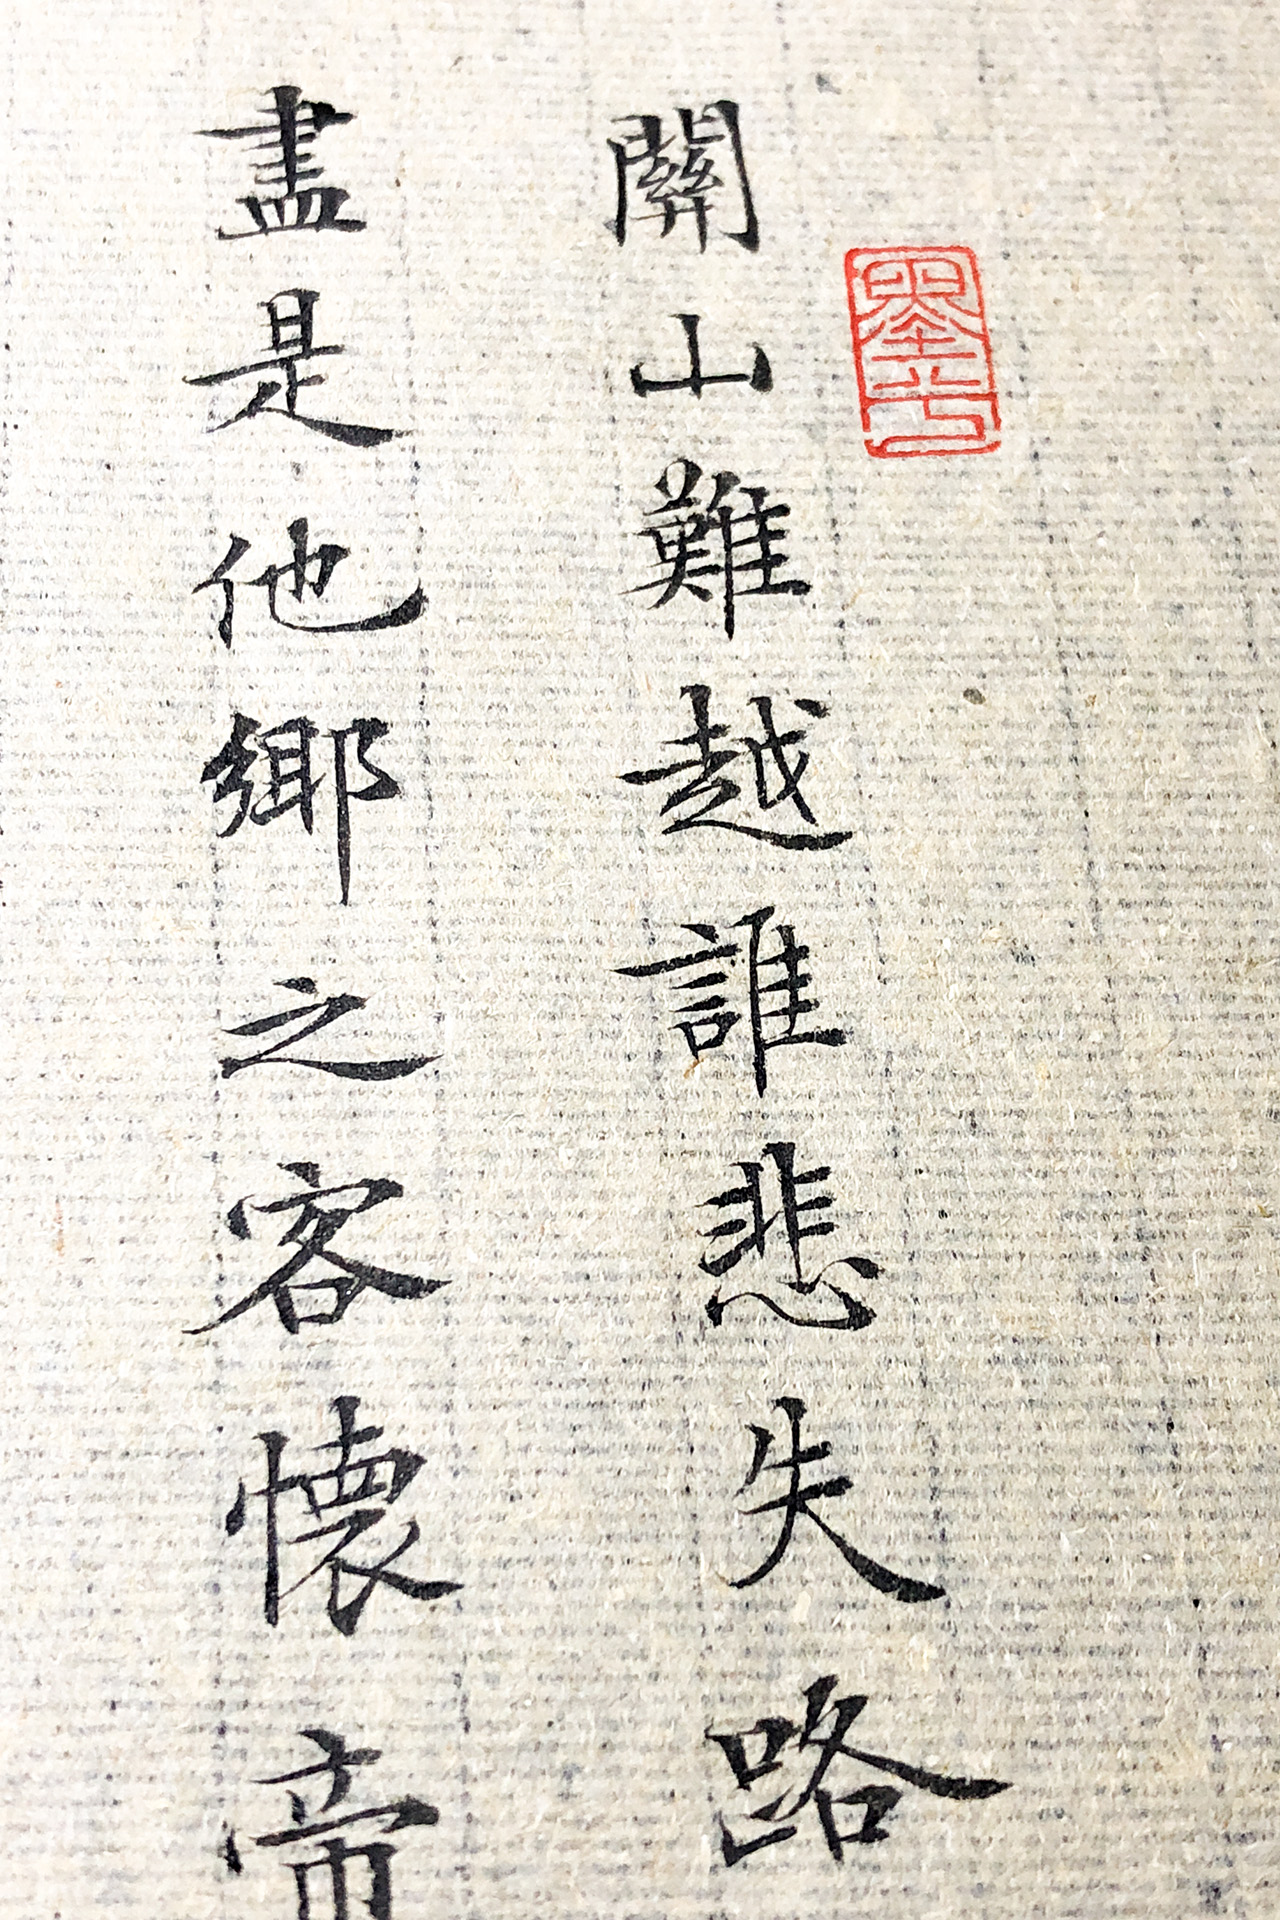 關山難越誰悲失路
盡是他鄉之客懷帝